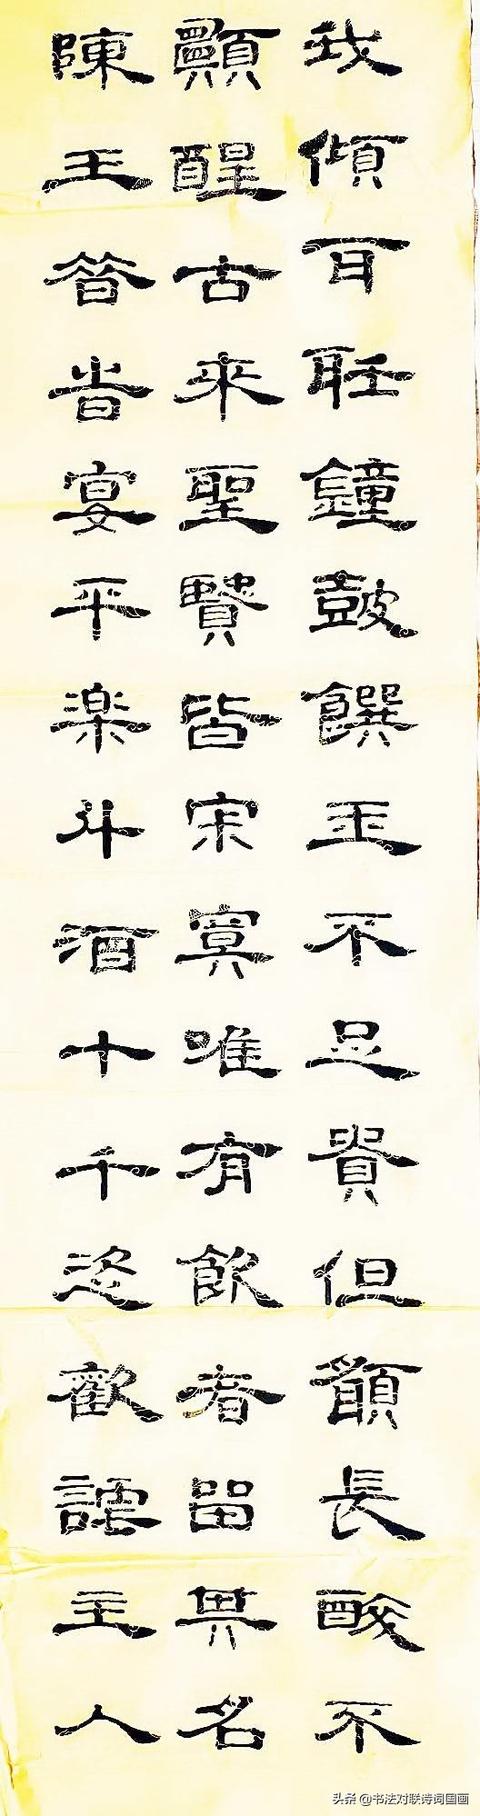 我傾耳聽鐘鼓饌玉不足貴但願長醉不
願醒古來聖賢皆寂寞唯有飲者留其名
陳王昔旹宴平楽斗酒十千恣歡謔主人
头条 @书法对联诗词国画